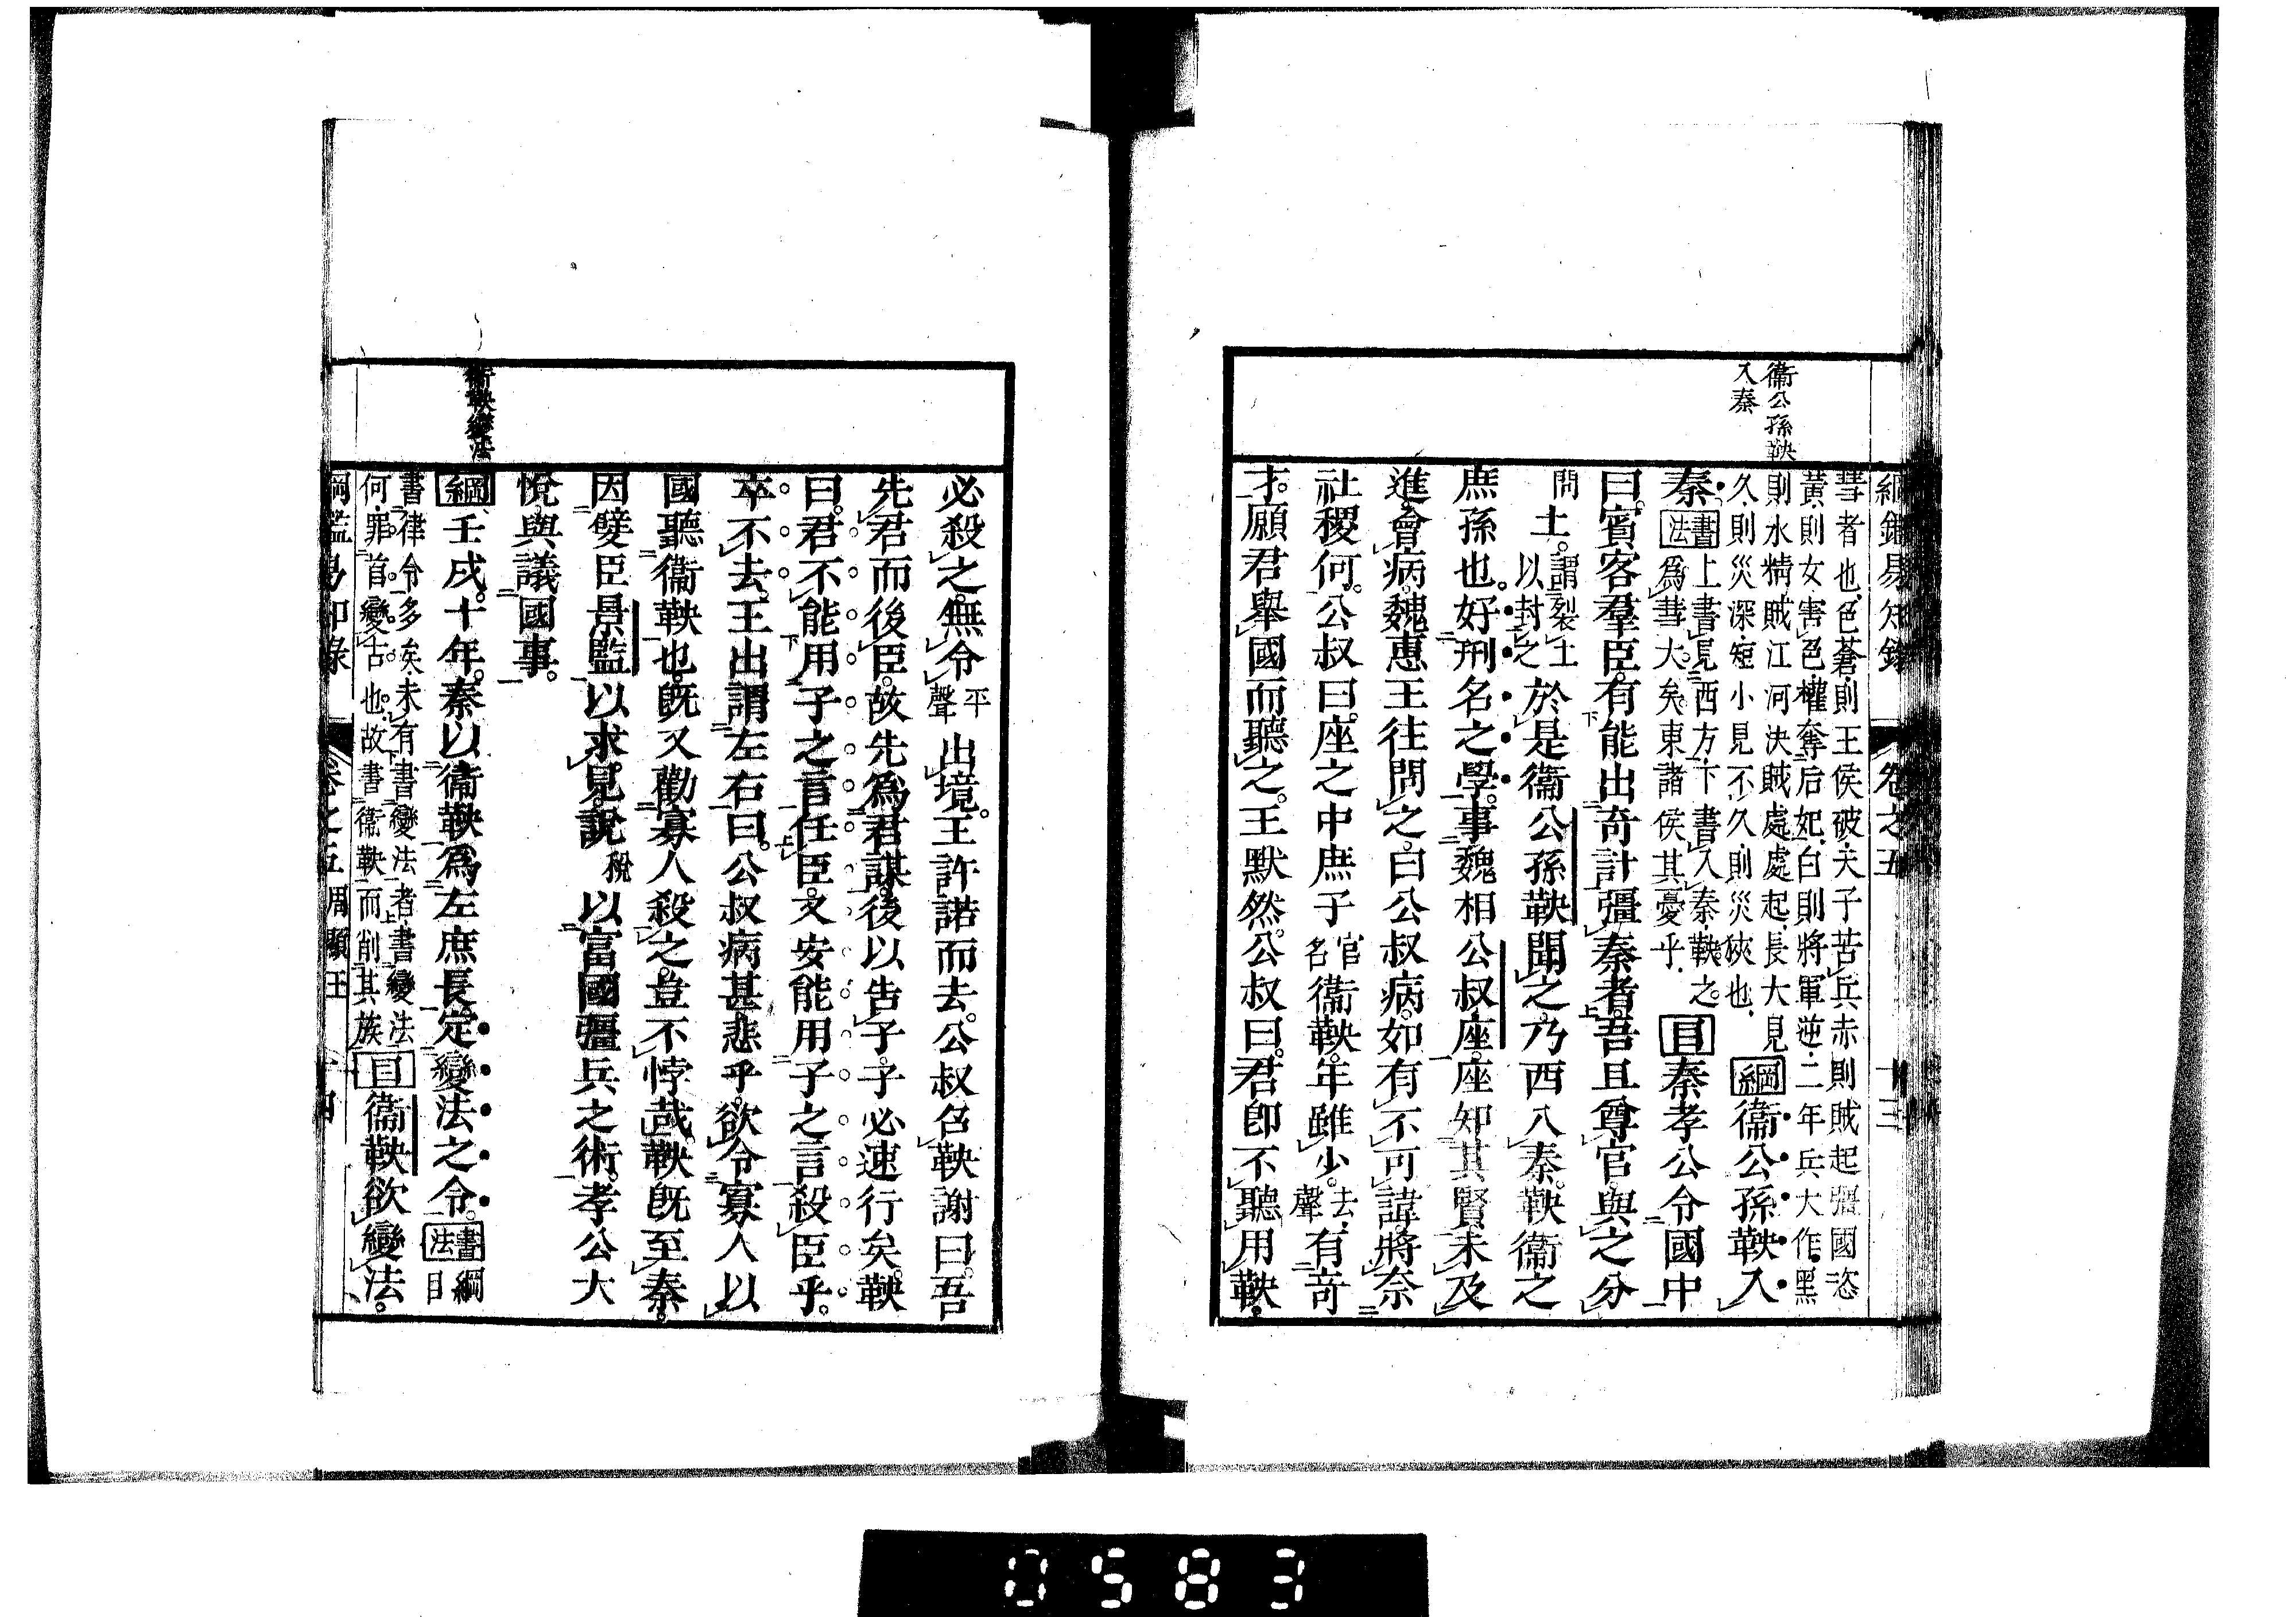 綱鑑易知錄 卷之五 十三
衞公孫鞅
入秦
彗者也色蒼則王侯破天子苦兵赤則賊起彊國恣
黃則女害色權奪后妃白則將軍逆二年兵大作黑
則水精賊江河決賊處處起長大見
久則災深短小見不久則災狹也
綱衞公孫鞅入
秦
書法上書見西方下書入秦鞅之
爲彗大矣東諸侯其憂乎
目秦孝公令國中
曰賓客羣臣有能出奇計彊秦者吾且尊官與之分
問
土
謂裂土
以封之
於是衞公孫鞅聞之乃西入秦鞅衞之
庶孫也好刑名之學事魏相公叔座座知其賢未及
進會病魏惠王往問之曰公叔病如有不可諱將奈
社稷何公叔曰座之中庶子官名衞鞅年雖少去聲有奇
才願君舉國而聽之王默然公叔曰君即不聽用鞅
必殺之無令平聲出境王許諾而去公叔召鞅謝曰吾
先君而後臣故先爲君謀後以告子子必速行矣鞅
曰君不能用子之言任臣又安能用子之言殺臣乎
卒不去王出謂左右曰公叔病甚悲乎欲令寡人以
國聽衞鞅也既又勸寡人殺之豈不悖哉鞅既至秦
因嬖臣景監以求見說稅以富國彊兵之術孝公大
悅與議國事
衞鞅變法
綱壬戌十年秦以衞鞅爲左庶長定變法之令
書法綱
目
書律令多矣未有書變法者書變法
何罪首變古也故書衞鞅而削其族
目衞鞅欲變法
綱鑑易知錄 卷之五 周顯王 十四
0583